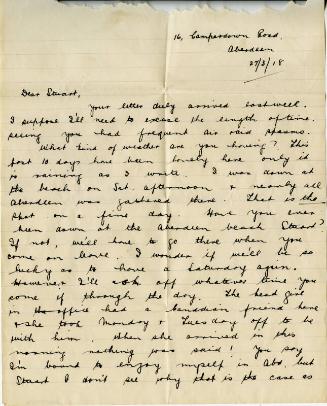 16, Camperdown Road,
Aberdeen
27/3/18
Dear Stuart,
your letter duly arrived last week.
I suppose I'll need to excuse the length of time
seeing you had frequent air raid spasms.
What kind of weather are you having? This
past 10 days have been lovely here only it
is raining as I write. I was down at
the beach on Sat. afternoon & nearly all
Aberdeen was gathered there. That is the
spot on a fine day. Have you ever
been down at the Aberdeen beach Stuart?
If not, we'll have to go there when you
come on leave. I wonder if we'll be so
lucky as to have a Saturday again.
However I'll ask off whatever time you
come if through the day. The head girl
in the office had a Canadian friend here
& she took Monday & Tuesday off to be
with him. When she arrived in this
morning nothing was said! You say
I'm bound to enjoy myself in Abd. but
Stuart I don't see why that is the case as